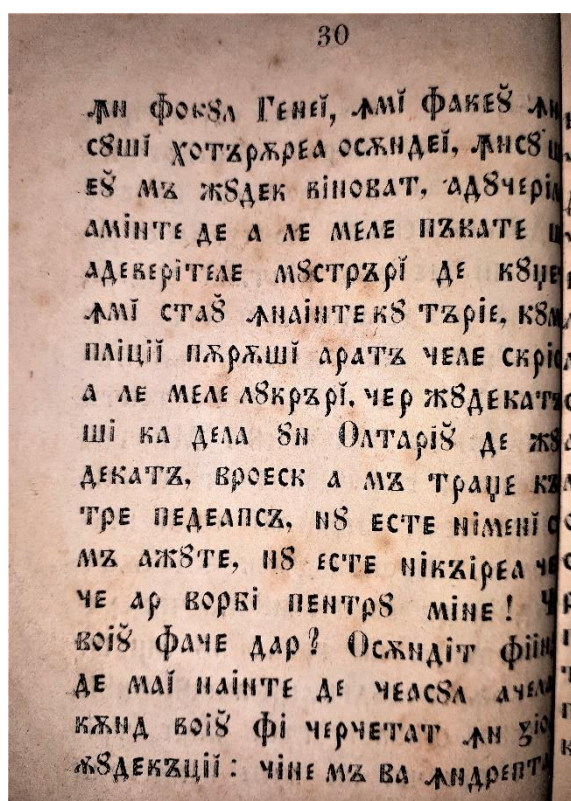 30
ꙟн фокꙋл Генеї, ꙟмї факеꙋ̆ ꙟн
сꙋшї хотърѫреа осѫндеї, ꙟнсꙋш
еꙋ̆ мъ жꙋдек віноват, адꙋчеріле
амінте де а ле меле пъкате
адеверітеле мꙋстрърї де кꙋџет
ꙟмї стаꙋ̆ ꙟнаінте кꙋ търіе, ком
пліції пѫрѫшї аратъ челе скрісе
а ле меле лꙋкрърї, чер жꙋдекатъ
ші ка дела ꙋн Олтаріꙋ̆ де жꙋ
декатъ, вроеск а мъ траџе къ
тре педеапсъ, нꙋ есте німенї с
мъ ажꙋте, нꙋ есте нікъіреа че
че ар ворбі пентрꙋ міне!
воіꙋ̆ фаче дар? Осѫндіт фіінд
де маї наінте де чеасꙋл ачела
кѫнд воіꙋ̆ фі черчетат ꙟн ꙁіоа
жꙋдекъції: чіне мъ ва ꙟндрепта